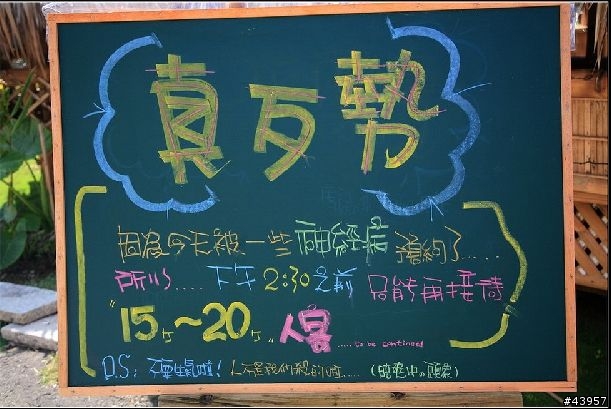 真歹勢
因為今天被一些神經病預約了.....
所以..... 下午2:30之前 只能再接待
"15ケ~20ケ" 人客 ......to be continued
P.S: 不要生氣啦! 人不是我們殺的
#43957